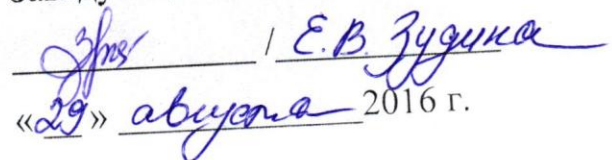 / Е.В. Зудина
«29» августа 2016 г.